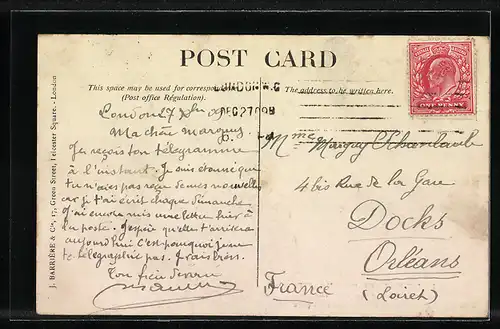 POST CARD
This space may be used for correspondence
(Post office Régulation).
The address to be written here.
LONDON.W.C
DEC 27 09
ONE PENNY
J. BARRIÈRE & Co, 17, Green Street, Leicester Square. - London
London 27
Ma chère
Je reçois ton télégramme
à l'instant. Je suis étonné que
tu n'aies pas reçu de mes nouvelles
car je t'ai écrit chaque dimanche
J'ai encore mis une lettre hier à
la poste. J'espère qu'elle t'arrivera
aujourd'hui c'est pourquoi je ne
te télégraphie pas.
Ton frère
Mme
4 bis Rue de la Gare
Docks
Orléans
France (Loiret)